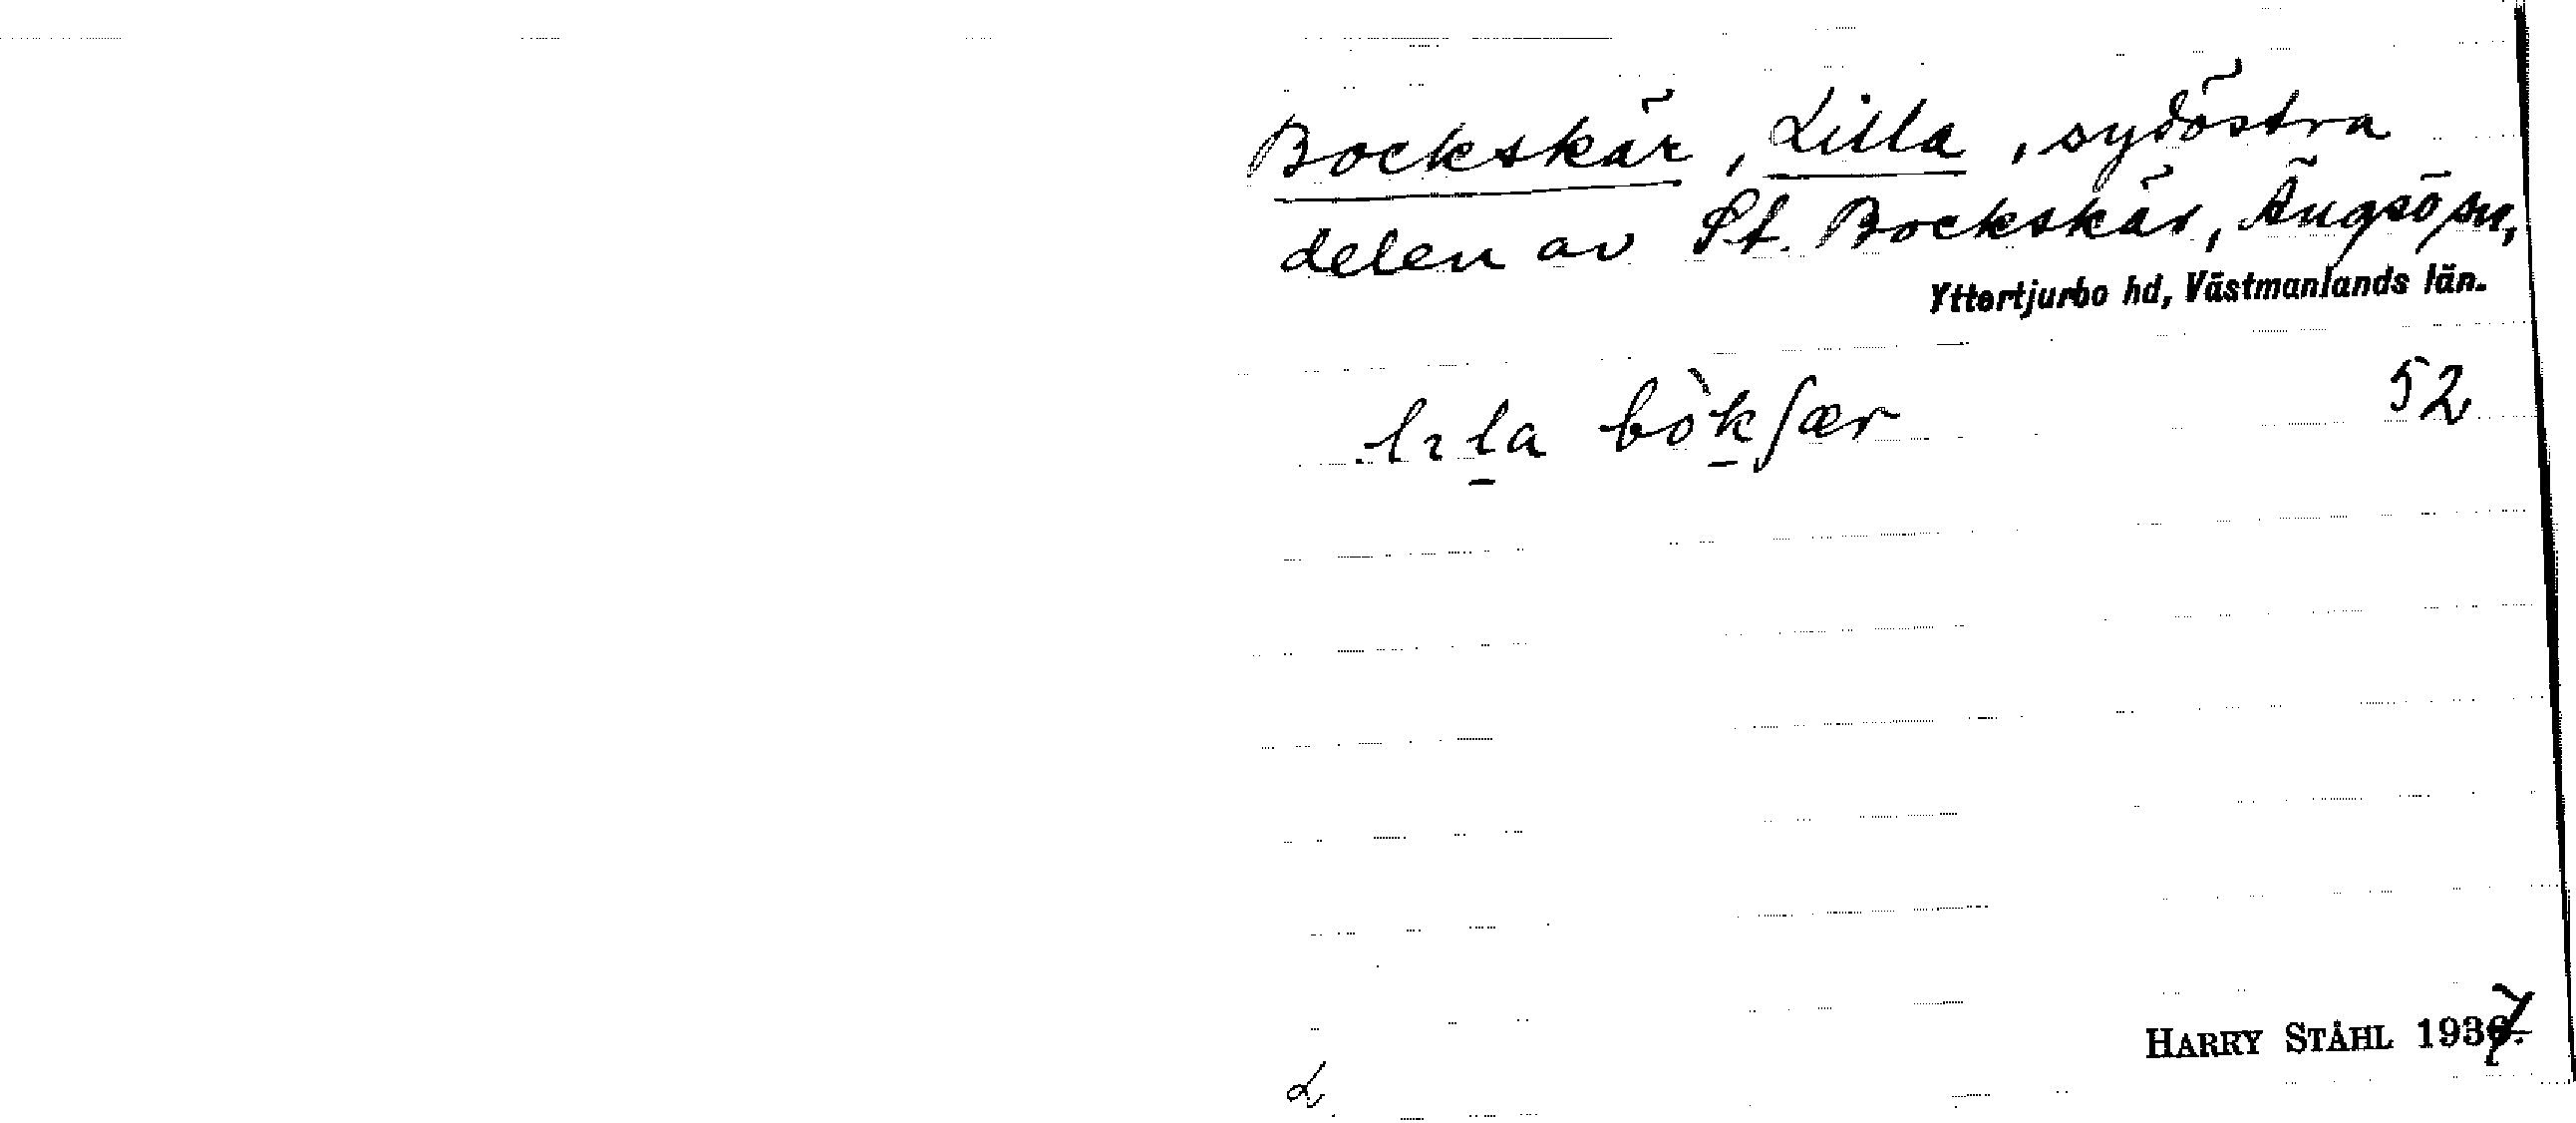 Bockskär, Lilla, sydöstra
delen av St. Bockskär, Ängsö sn,
Yttertjurbo hd, Västmanlands län.
52
HARRY STÅHL 1937.